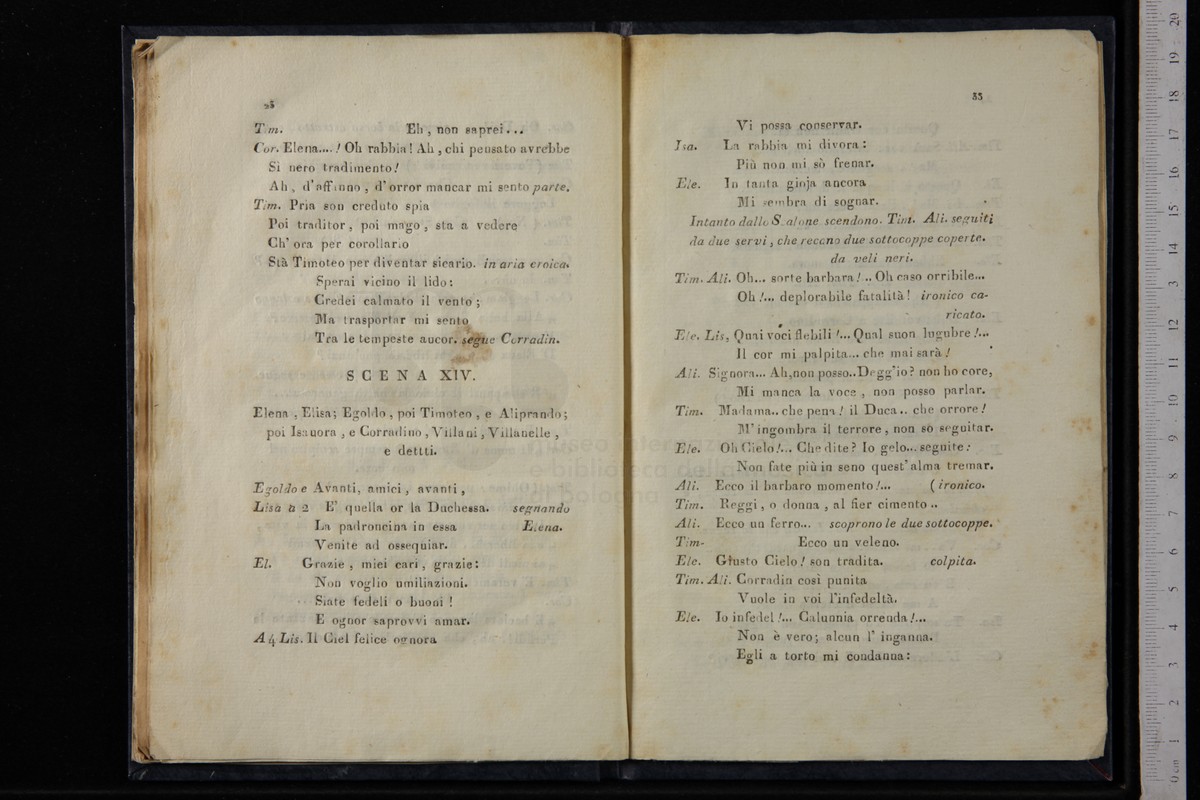 Tim. Eh, non saprei...
Cor. Elena....! Oh rabbia! Ah, chi pensato avrebbe
Sì nero tradimento!
Ah, d'affanno, d'orror mancar mi sento parte.
Tim. Pria son creduto spia
Poi traditor, poi mago, sta a vedere
Ch' ora per corollario
Stà Timoteo per diventar sicario. in aria eroica.
Sperai vicino il lido:
Credei calmato il vento;
Ma trasportar mi sento
Tra le tempeste aucor. segue Corradin.
SCENA XIV.
Elena, Elisa; Egoldo, poi Timoteo, e Aliprando;
poi Isauora, e Corradino, Villani, Villanelle,
e dettti.
Egoldo e Avanti, amici, avanti,
Lisa a 2 E' quella or la Duchessa. segnando
La padroncina in essa Elena.
Venite ad ossequiar.
El. Grazie, miei cari, grazie:
Non voglio umiliazioni.
Siate fedeli o buoni!
E ognor saprovvi amar.
A 4 Lis. Il Ciel felice ognora
33
Vi possa conservar.
Isa. La rabbia mi divora:
Più non mi sò frenar.
Ele. In tanta gioja ancora
Mi sembra di sognar.
Intanto dallo Salone scendono. Tim. Ali. seguiti
da due servi, che recano due sottocoppe coperte.
da veli neri.
Tim. Ali. Oh... sorte barbara!.. Oh caso orribile...
Oh!... deplorabile fatalità! ironico ca-
ricato.
Ele. Lis, Quai voci flebili!... Qual suon lugubre!...
Il cor mi palpita... che mai sarà!
Ali. Signora... Ah,non posso..Degg'io? non ho core,
Mi manca la voce, non posso parlar.
Tim. Madama.. che pena! il Duca.. che orrore!
M'ingombra il terrore, non so seguitar.
Ele. Oh Cielo!... Che dite? Io gelo... seguite:
Non fate più in seno quest'alma tremar.
Ali. Ecco il barbaro momento!... (ironico.
Tim. Reggi, o donna, al fier cimento..
Ali. Ecco un ferro... scoprono le due sottocoppe.
Tim- Ecco un veleno.
Ele. Giusto Cielo! son tradita. colpita.
Tim. Ali. Corradin così punita
Vuole in voi l'infedeltà.
Ele. Io infedel!... Calunnia orrenda!...
Non è vero; alcun l' inganna.
Egli a torto mi condanna: